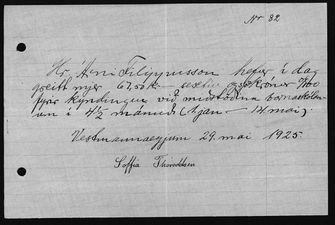 Nr 82
Hr. Árni Filippusson hefur í dag
greitt mjer 67,50 kr - sextíu og sjö krónur 50/100
fyrir kyndingu við miðstöðina í barnaskólan-
um í 4½ mánuð (1 jan. - 14 maí).
Vestmannaeyjum 29. maí 1925
Soffía Thoroddsen